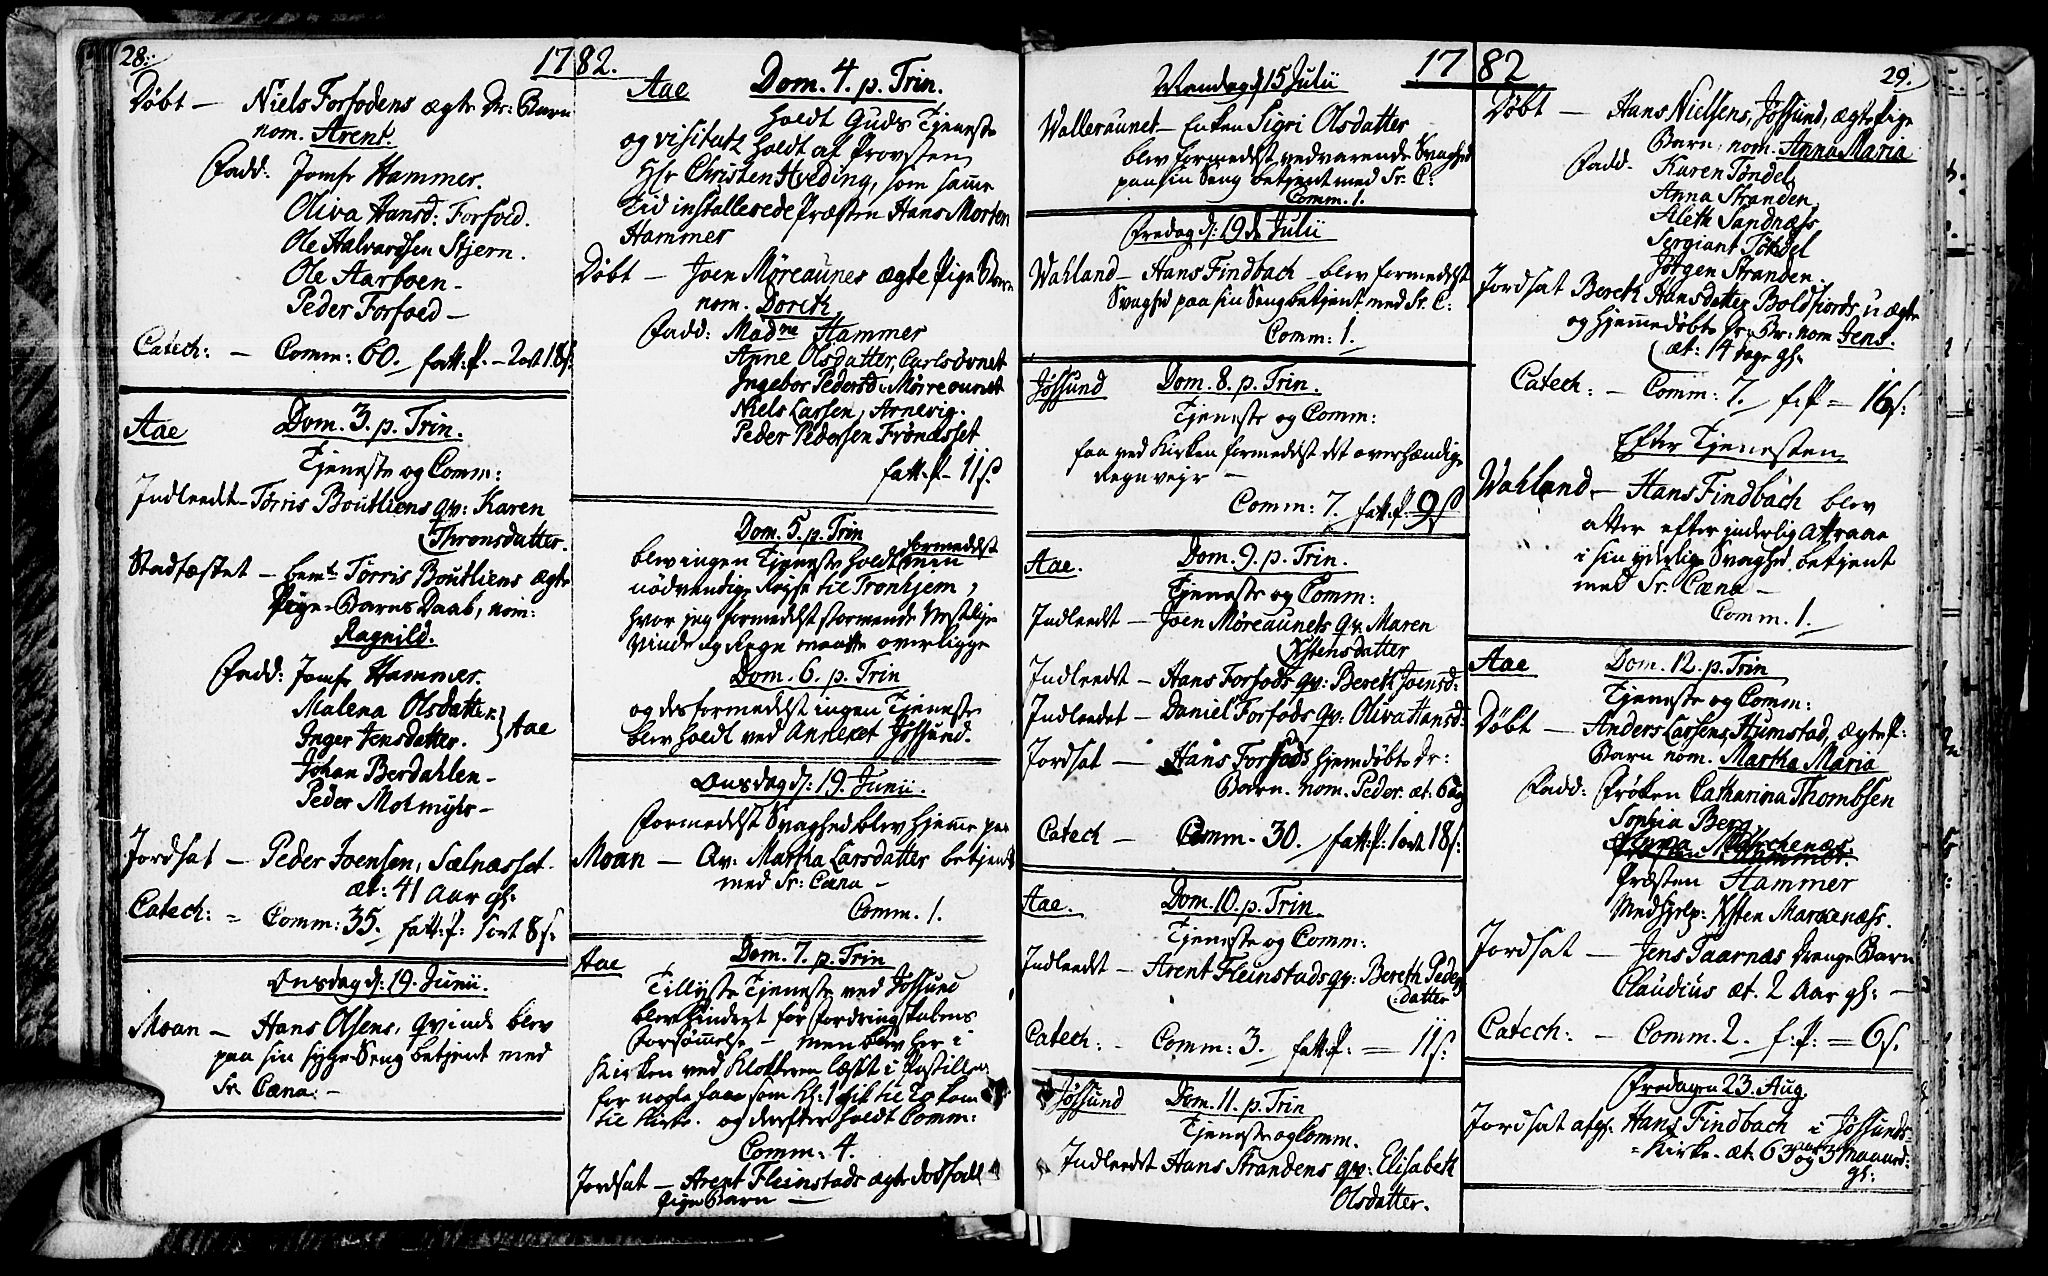 28.
1782.
Døbt — Niels Forfodens ægte Dr: Barn
nom. Arent.
Fadd: Jomfr Hammer.
Oliva Hansd: Forfod.
Ole Halvardsen Stjern.
Ole Aarboen —
Peder Forfoed —
Catech: — Comm: 60. fatt: P. — 2 ort 18 s.
Aae Dom. 3. p. Trin.
Tjeneste og Comm:
Indleedt — Torris Boutliens qv: Karen
Thronsdatter.
Stadfæstet — bemte Torris Boutliens ægte
Pige-Barns Daab, nom:
Ragnild.
Fadd: Jomfr Hammer.
Malena Olsdatter
Inger Jensdatter. } Aae
Johan Berdahlen —
Peder Molmyhr —
Jordsat — Peder Joensen, Sælnæsset
æt: 41 Aar gl:
Catech: = Comm: 35. fatt: P: 1 ort 8 s.
Onsdag d: 19. Junii.
Moan — Hans Olsens, qvinde blev
paa sin syge Seng betjent med
Sr. Cæna: —
Aae Dom. 4. p. Trin.
holdt Guds Tjeneste
og visitatz holdt af Provsten
Hr Christen Hveding, som samme
Tid installerede Præsten Hans Morten
Hammer
Døbt — Joen Møreaunes ægte Pige Barn
nom. Doreth
Fadd: Madne Hammer
Anne Olsdatter, Carlsdonet
Ingebor Pedersd: Mørreaunet
Niels Larsen, Arnevig.
Peder Pedersen Frønæsset
fatt. P. 11 s.
Dom. 5. p. Trin
blev ingen Tjeneste holdt formedelst min
nødvendige Rejse til Tronhjem,
hvor jeg formedelst stormende Vestlige
Vinde og Regn maatte overligge
Dom. 6. p. Trin
og desformedelst ingen Tjeneste
blev holdt ved Annexet Jøssund.
Onsdag d: 19. Junii.
Formedelst Svaghed blev hjemme paa
Moan — Qv: Martha Larsdatter betjent
med Sr: Cæna —
Comm. 1.
Aae Dom. 7. p. Trin
Tillyste Tjeneste ved Jøssund
blev hindret for fordringskabens
Forsømmelse — men blev her i
Kirken ved Klokkeren læst i Postillen
for nogle faae som til Kirke kom
til Kirke. og derefter holdt Comm:
Comm: 4.
Jordsat — Arent Fleinstads ægte dødfød
Pige Barn —
17
Mandag d 15 Julii
Walleraunet — Enken Sigri Olsdatter
blev formedelst vedvarende Svaghed
paa sin Seng betjent med Sr. C:
Comm. 1.
Fredag d: 19de Julii
Wahland — Hans Findbach — blev formedelst
Svaghed paa sin Seng betjent med Sr. C:
Comm: 1.
Jøssund Dom. 8. p. Trin.
Tjeneste og Comm:
faa ved Kirken formedelst det overhændige
Regnvejr —
Comm: 7. fatt. P. 9 s
Aae. Dom. 9. p. Trin.
Tjeneste og Comm:
Indleedt — Joen Møreaunets qv. Maren
Ystensdatter
Indleedt — Hans Forfods qv: Bereth Joensd:
Indleedet — Daniel Forfods qv: Oliva Hansd:
Jordsat — Hans Forfods hjemdøbte Dr:
Barn. nom. Peder. æt: 6 dag
Catech — Comm. 30. fatt: P: 1 ort 18 s:
Aae. Dom. 10. p. Trin
Tjeneste og Comm:
Indleedt — Arent Fleinstads qv: Bereth Peders
datter
Catech: — Comm: 3. fatt: P: = 11 s:
Jøssund Dom. 11. p. Trin
Tjeneste og Comm.
Indleedt Hans Strandens qv: Elisabeth
Olsdatter.
82
29.
Døbt — Hans Nielsens, Jøssund, ægte Pige
Barn, nom. Anna Maria
Fadd. Karen Tøndel
Anna Stranden
Aleth Sandnæss
Sergiant Tøndel
Jørgen Stranden.
Jordsat Bereth Hansdatter Boldfiords u ægte
og hjemmedøbte Dr. Br: nom Jens.
æt: 14 dage gl.
Catech: — Comm: 7. f: P = 16 s:
Efter Tjenesten
Wahland — Hans Findbach blev
atter efter inderlig Attraae
i sin yderlige Svaghed betjent
med Sr: Cæna —
Comm. 1.
Aae Dom. 12. p. Trin
Tjeneste og Comm:
Døbt — Anders Larsens Humstad, ægte P:
Barn nom. Martha Maria
Fadd: Frøken Catharina Thombsen
Sophia Berg
Præsten Hammer
Medhjelp: Ysten Marcenæss.
Jordsat — Jens Taarnæs Drenge Barn
Claudius æt. 2 Aar gl: —
Catech: — Comm. 2. f: P: = 6 s.
Fredagen 23. Aug.
Jordsat afg: Hans Findbach i Jøssunds-
Kirke. æt. 63 og 3 maaned
gl: